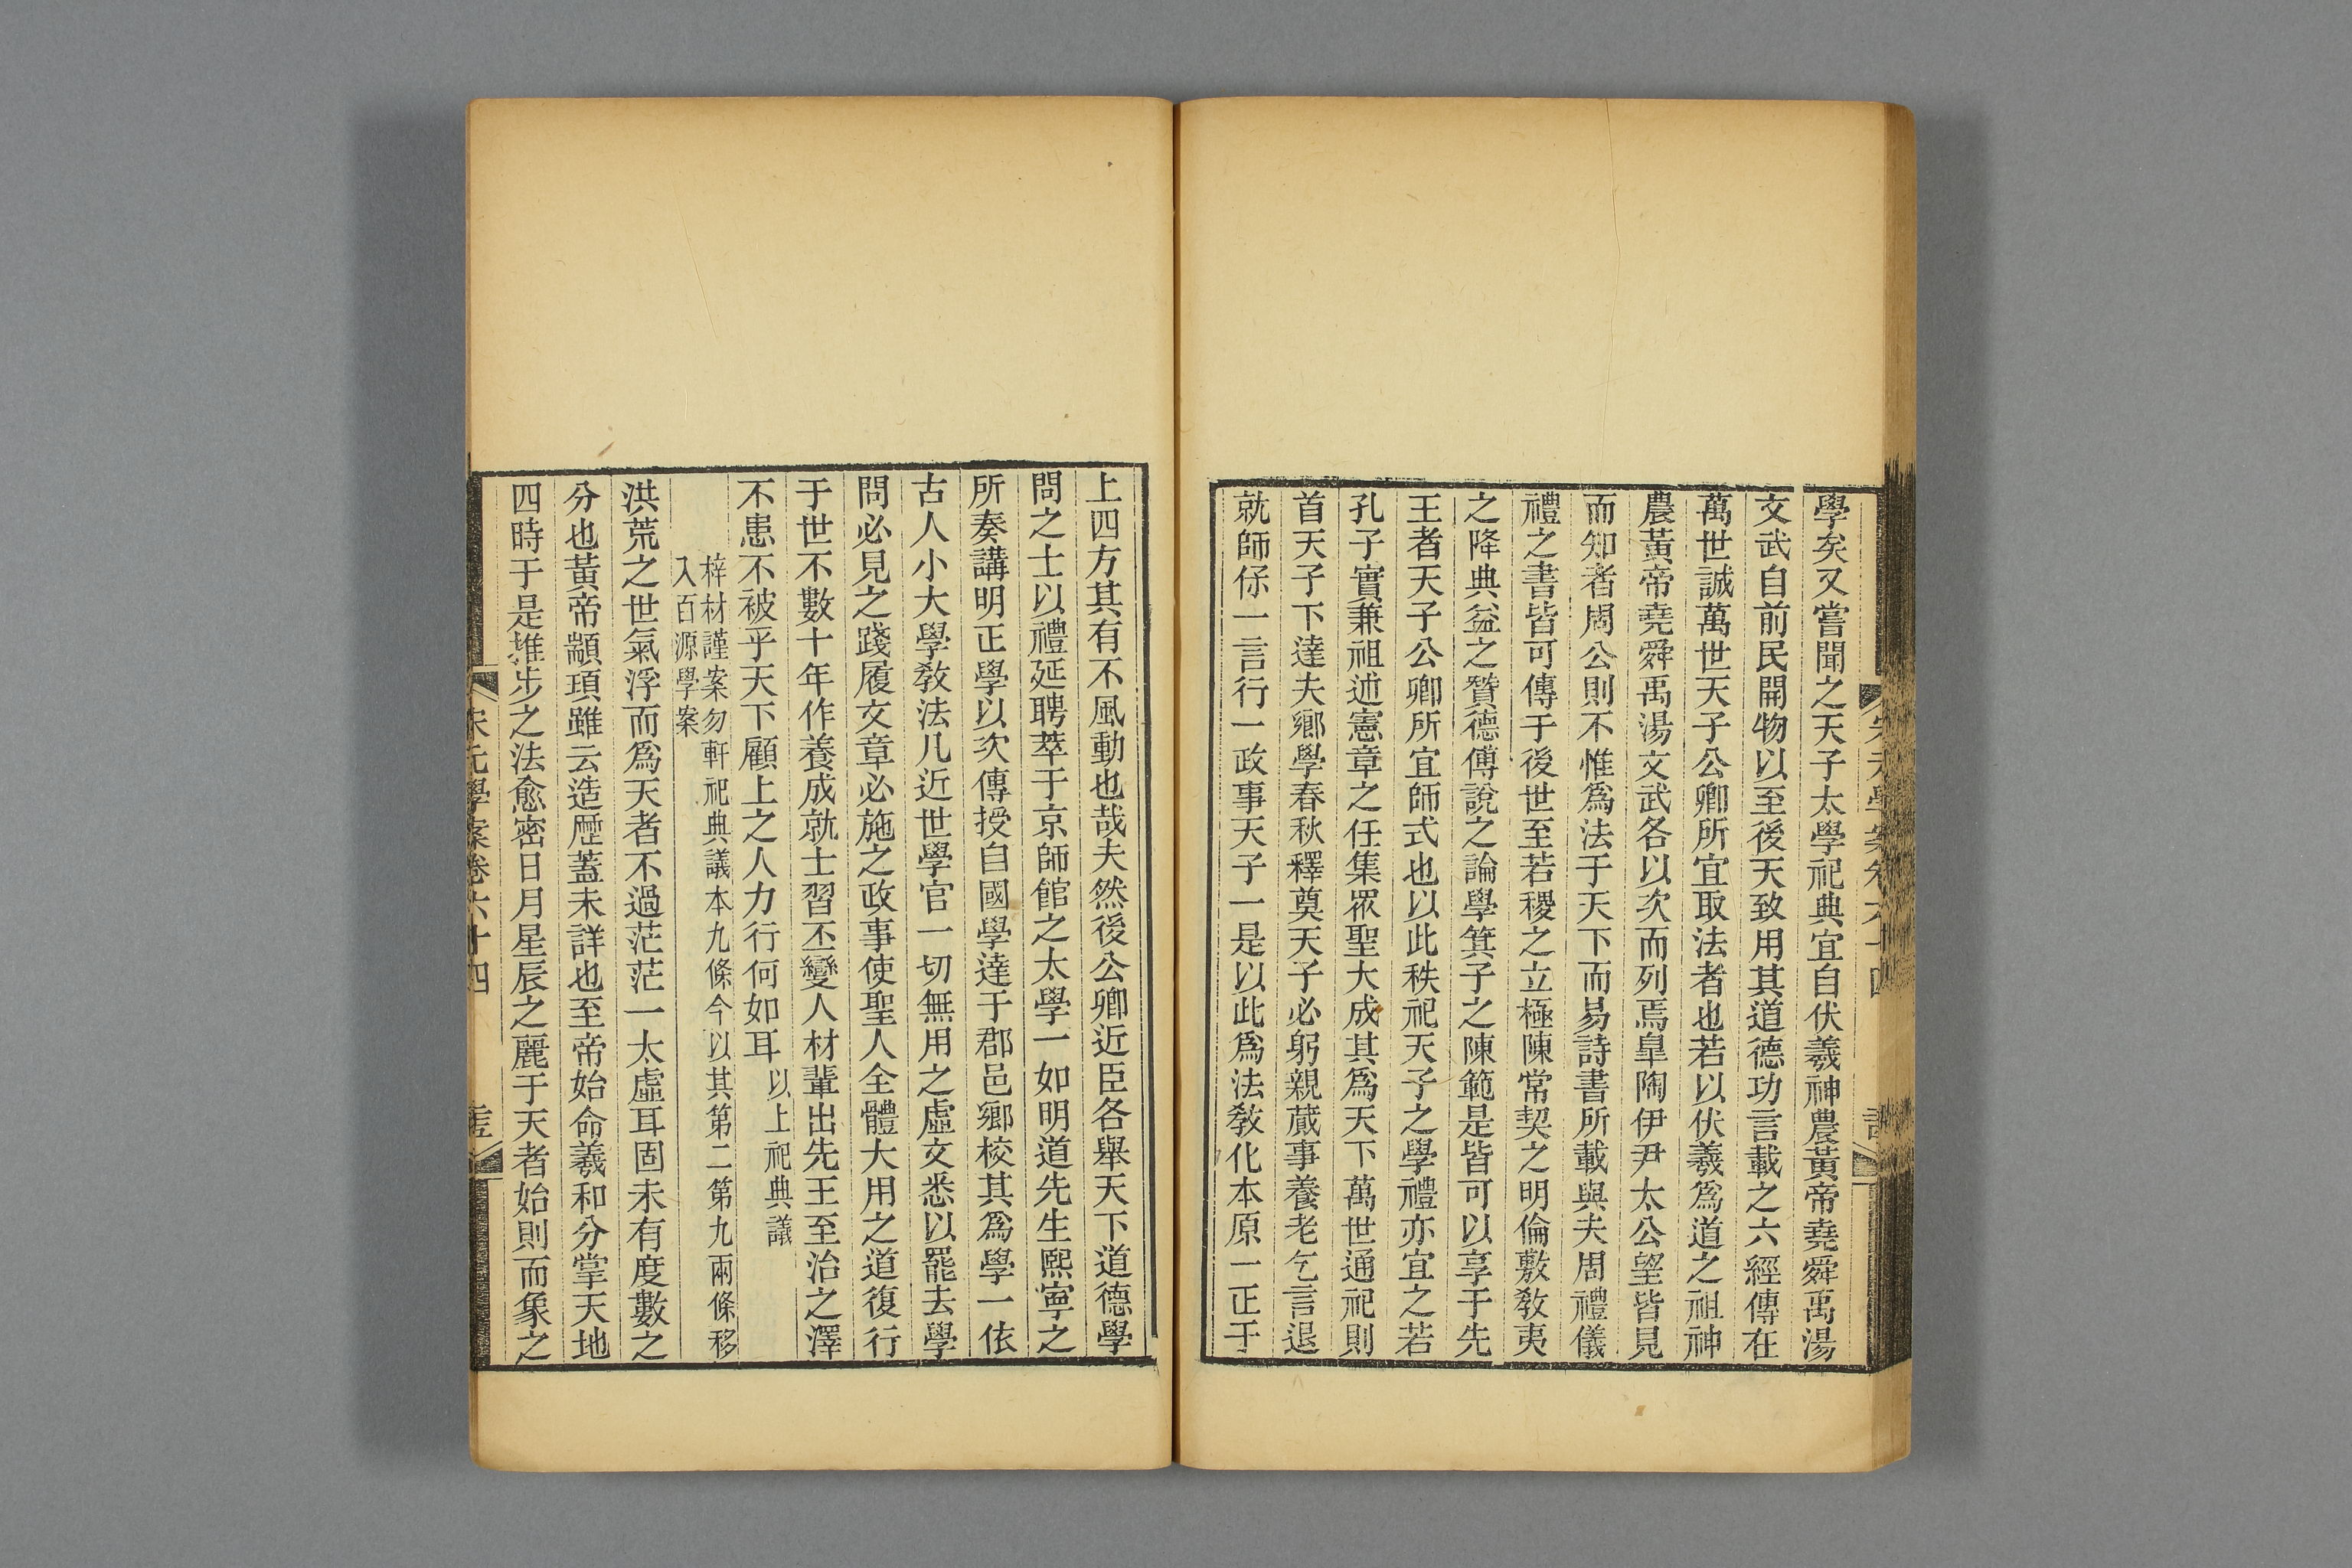 學矣又嘗聞之天子太學祀典宜自伏羲神農黃帝堯舜禹湯
文武自前民開物以至後天致用其道德功言載之六經傳在
萬世誠萬世天子公卿所宜取法者也若以伏羲爲道之祖神
農黃帝堯舜禹湯文武各以次而列焉臯陶伊尹太公望皆見
而知者周公則不惟爲法于天下而易詩書所載與夫周禮儀
禮之書皆可傳于後世至若稷之立極陳常契之明倫敷敎夷
之降典益之贊德傅說之論學箕子之陳範是皆可以享于先
王者天子公卿所宜師式也以此秩祀天子之學禮亦宜之若
孔子實兼祖述憲章之任集眾聖大成其爲天下萬世通祀則
首天子下達夫鄉學春秋釋奠天子必躬親蕆事養老乞言退
就師保一言行一政事天子一是以此爲法敎化本原一正于
上四方其有不風動也哉夫然後公卿近臣各舉天下道德學
問之士以禮延聘萃于京師館之太學一如明道先生熙寧之
所奏講明正學以次傳授自國學達于郡邑鄉校其爲學一依
古人小大學敎法凡近世學官一切無用之虛文悉以罷去學
問必見之踐履文章必施之政事使聖人全體大用之道復行
于世不數十年作養成就士習丕變人材輩出先王至治之澤
不患不被乎天下顧上之人力行何如耳以上祀典議
梓材謹案勿軒祀典議本九條今以其第二第九兩條移
入百源學案
洪荒之世氣浮而爲天者不過茫茫一太虛耳固未有度數之
分也黃帝顓頊雖云造歷蓋未詳也至帝始命羲和分掌天地
四時于是推步之法愈密日月星辰之麗于天者始則而象之
宋元學案卷六十四